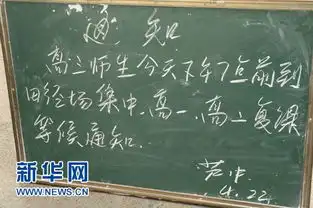 通知
高三师生今天下午7点前到
田径场集中.高一.高二复课
等候通知.
芦中
4.22
新华网
WWW.NEWS.CN